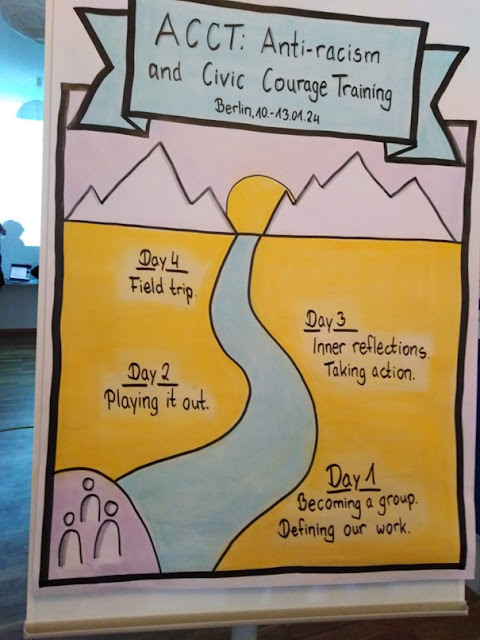 ACCT: Anti-racism
and Civic Courage Training
Berlin, 10.-13.01.24
Day 4
Field trip.
Day 3
Inner reflections.
Taking action.
Day 2
Playing it out.
Day 1
Becoming a group.
Defining our work.